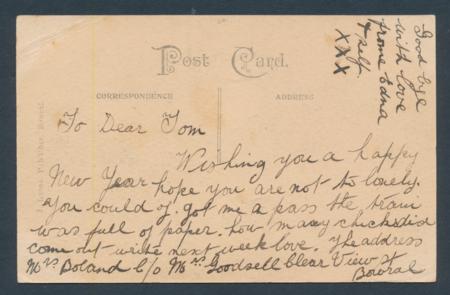 Good bye
with love
frome Edna
& self
XXX
Post Card.
CORRESPONDENCE
ADDRESS
To Dear Tom
Wishing you a happy
New Year hope you are not to lonely.
you could of. got me a pass the train
was full of paper. how many chicks did
come out write next week love. The address
Mrs Boland C/o Mrs Goodsell Clear View St
Bowral